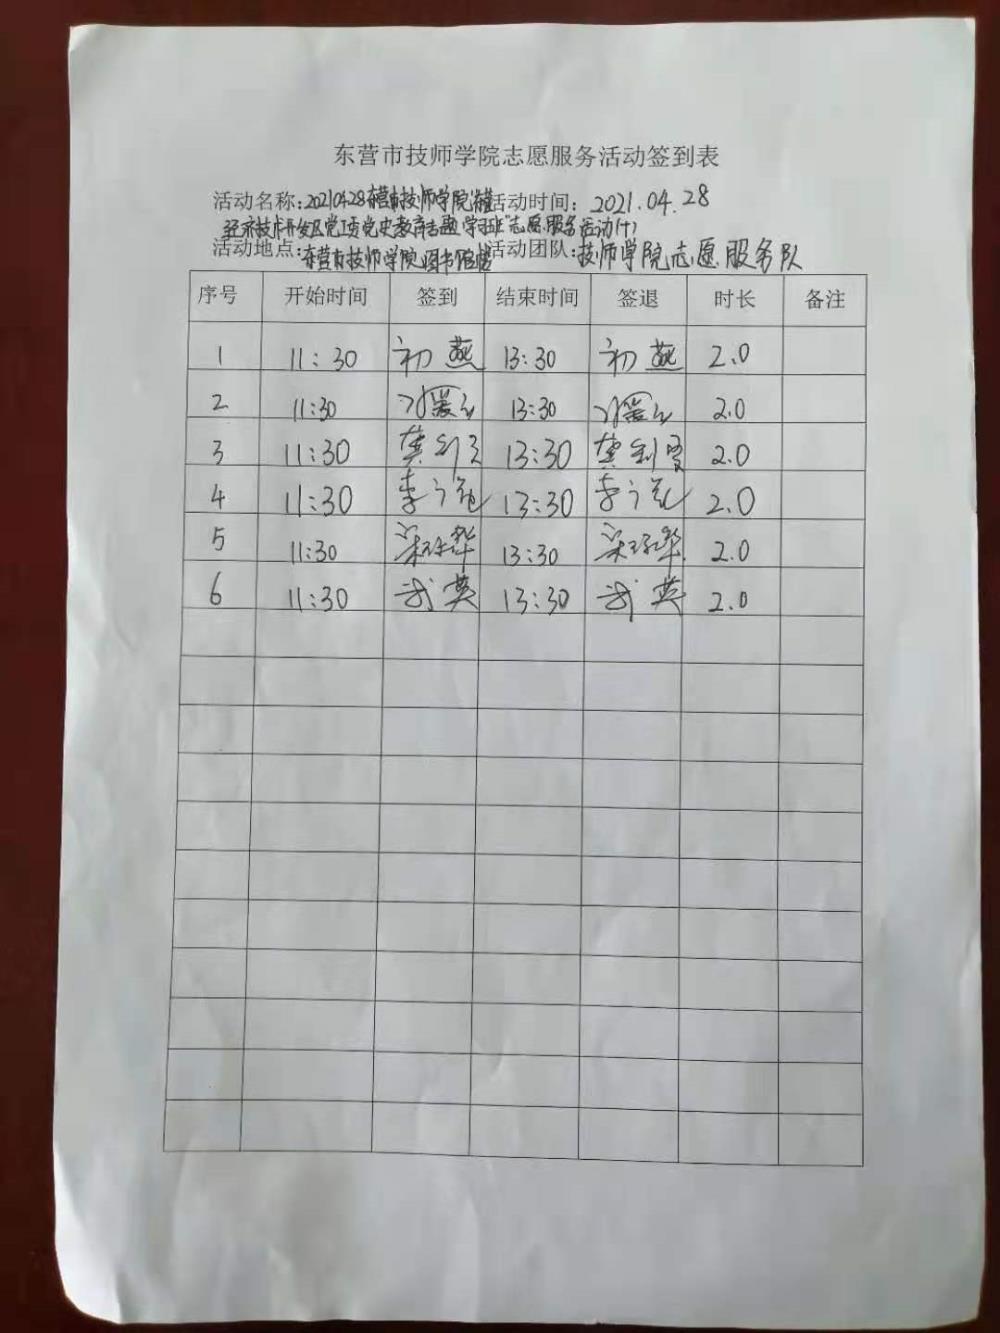 东营市技师学院志愿服务活动签到表
活动名称:20210428东营市技师学院 活动时间: 2021.04.28
经济技术开发区党工委党史教育专题学习班"志愿服务活动(十)
活动地点:东营市技师学院图书馆 活动团队:技师学院志愿服务队
序号 开始时间 签到 结束时间 签退 时长 备注
1 11:30 初燕 13:30 初燕 2.0
2 11:30 13:30 2.0
3 11:30 龚利 13:30 龚利 2.0
4 11:30 李 13:30 李 2.0
5 11:30 梁 华 13:30 梁 华 2.0
6 11:30 武英 13:30 武英 2.0